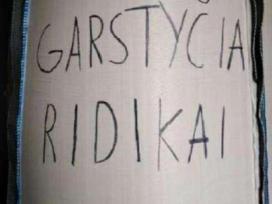 GARSTYČIA
RIDIKAI